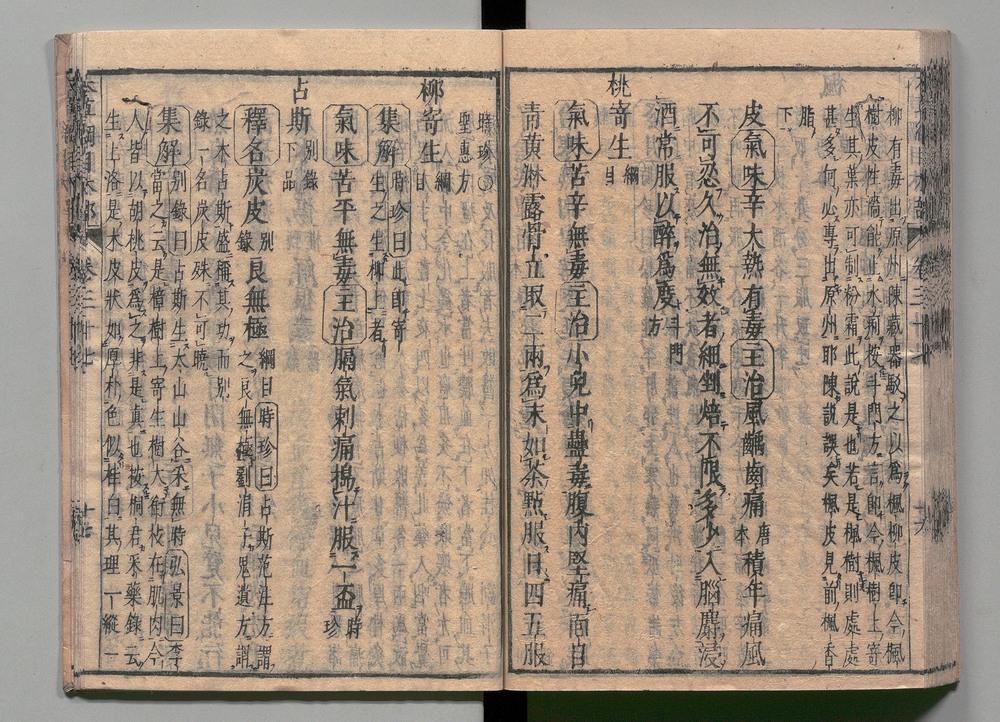 柳有毒出原州陳藏器駁之以爲楓柳皮即今楓
樹皮性濇能止水痢按斗門方言即今楓樹上寄
生其葉亦可制粉霜此說是也若是楓樹則處處
甚多何必專出原州耶陳說誤矣楓皮見前楓香
脂
下
皮氣味辛大熱有毒主治風齲齒痛唐本積年痛風
不可忍久治無效者細剉焙不限多少入腦麝浸
酒常服以醉爲度斗門方
桃寄生綱目
氣味苦辛無毒主治小兒中蠱毒腹內堅痛面目
青黃淋露骨立取二兩爲末如茶點服日四五服
時珍○
聖惠方
柳寄生綱目
集解時珍曰此即寄
生之生柳上者
氣味苦平無毒主治膈氣刺痛搗汁服一盃時珍
占斯別錄下品
釋名炭皮別錄良無極綱目時珍曰占斯范汪方謂
之良無極劉涓子鬼遺方謂
之木占斯盛稱其功而別
錄一名炭皮殊不可曉
集解別錄曰占斯生太山山谷采無時弘景曰李云
是樟樹上寄生樹大銜枝在肌肉今
人皆以胡桃皮爲之非是真也按桐君采藥錄云
生上洛是木皮狀如厚朴色似桂白其理一縱一